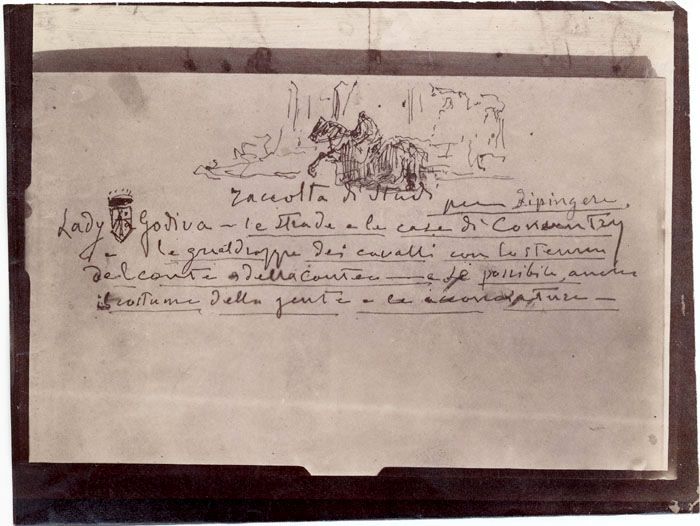 Raccolta di Studi per dipingere
Lady Godiva - le strade e le case di Conventry
e le gualdrappe dei cavalli con lo stemma
del conte e della contea - e se possibile, anche
il costume della gente e le acconciature -